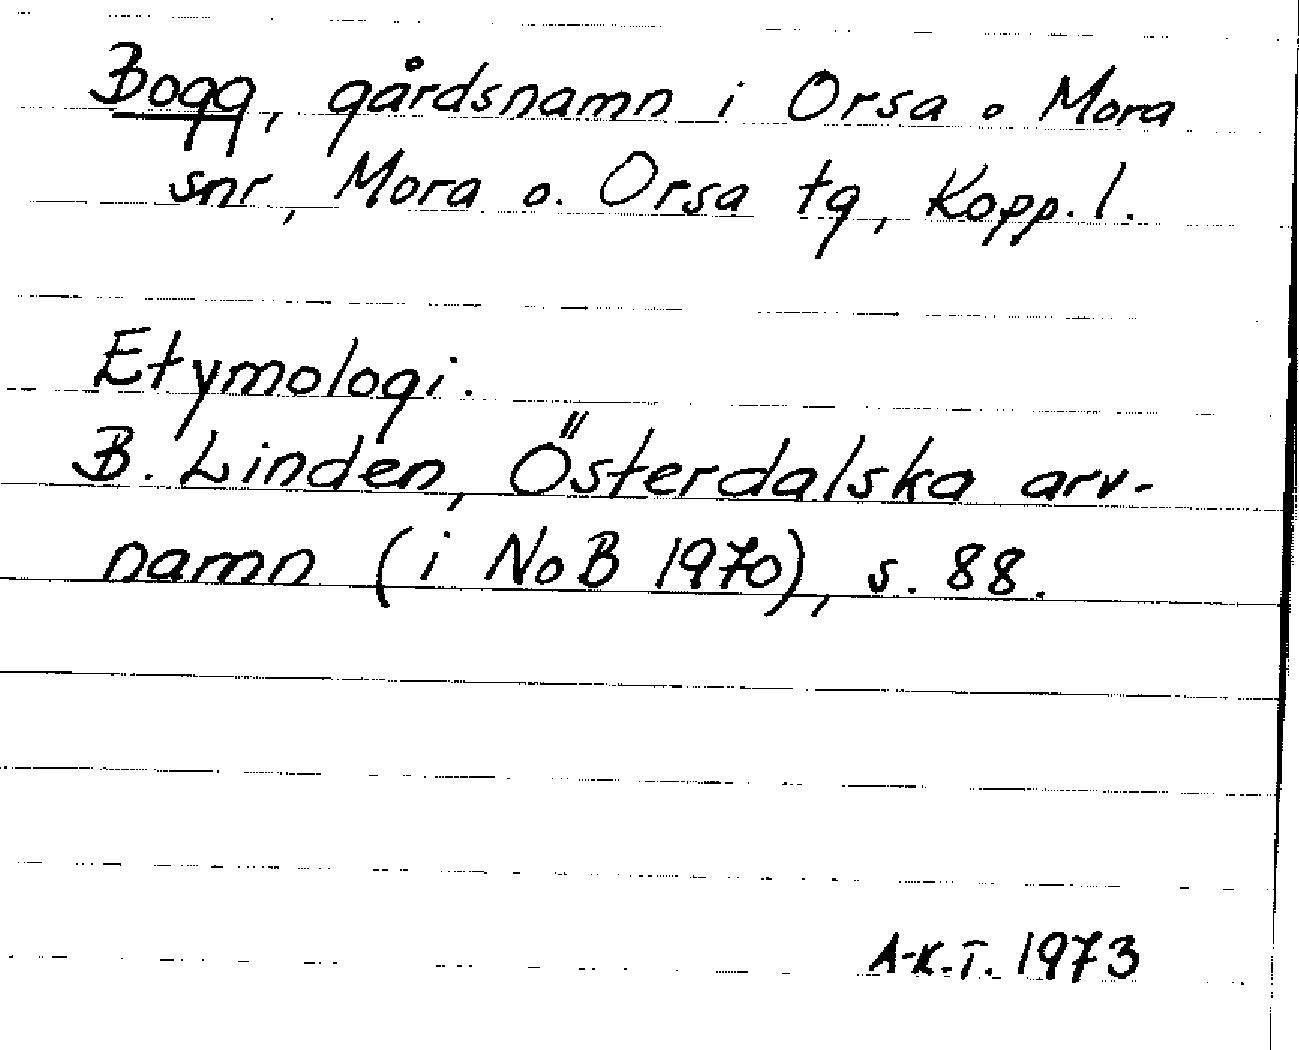 Bogg, gårdsnamn i Orsa o Mora
snr, Mora o. Orsa tg, Kopp. l.
Etymologi.
B. Linden, Österdalska arv-
namn (i NoB 1970), s. 88.
A-K.T. 1973